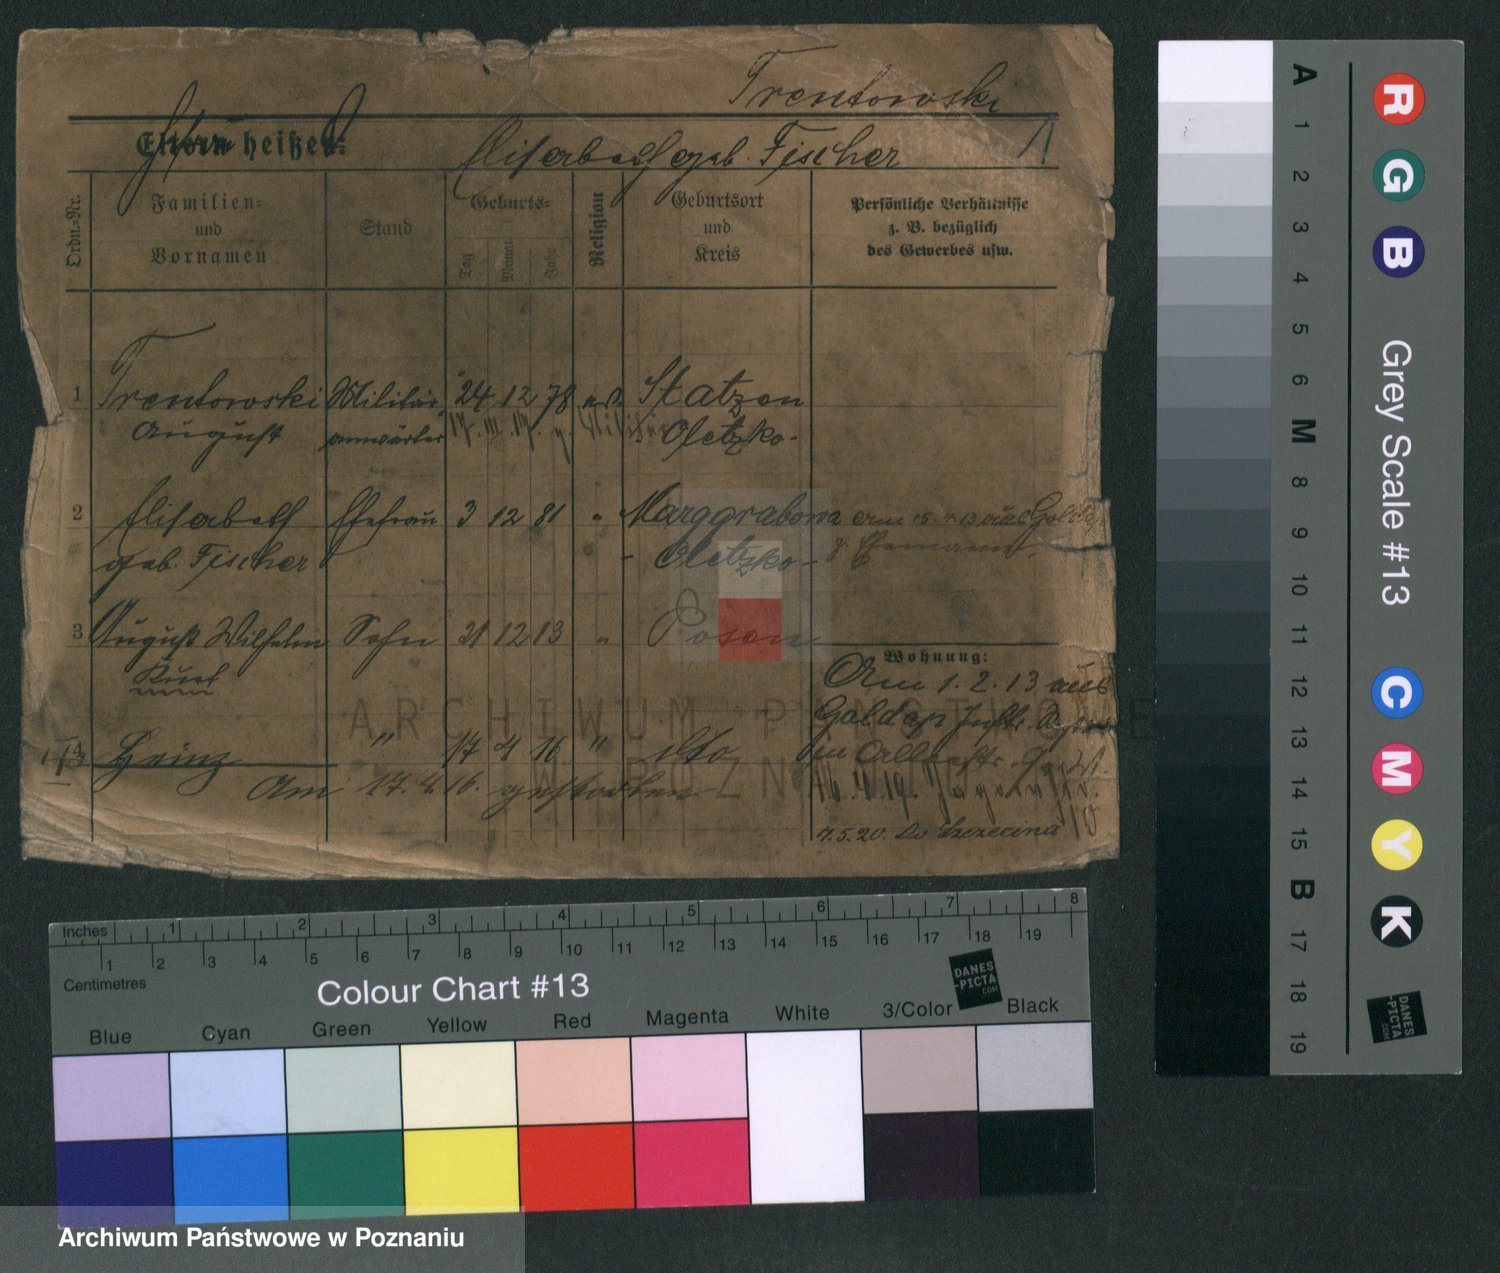 Trentowski
Eltern heißen:
Elisabeth geb. Fischer
Ordn.-Nr.
Familien-
und
Vornamen
Stand
Geburts-
Tag
Monat
Jahr
Religion
Geburtsort
und
Kreis
Persönliche Verhältnisse
z. B. bezüglich
des Gewerbes usw.
1 Trentowski Militär 24 12 78 ev. Statzen
August anwärter Oletzko-
2 Elisabeth Ehefrau 3 12 81 " Marggrabowa am 15.4.13 aus
geb. Fischer - Oletzko - z. Ehemann
3 August Wilhelm Sohn 21 12 13 " Posen
Kurt
Wohnung:
Am 1.2.13 aus
Goldap
4 Heinz " 17 4 16 " dto
Am 17.4.16. gestorben
16.4.19.
7.5.20. Do Szczecina
ARCHIWUM PAŃSTWOWE
W POZNANIU
A 1 2 3 4 5 6 M 8 9 10 11 12 13 14 15 B 17 18 19
R G B
Grey Scale #13
C M Y K
DANES
-PICTA
.COM
Inches 1 2 3 4 5 6 7 8
1 2 3 4 5 6 7 8 9 10 11 12 13 14 15 16 17 18 19
Centimetres
Colour Chart #13
DANES
-PICTA
.COM
Blue Cyan Green Yellow Red Magenta White 3/Color Black
Archiwum Państwowe w Poznaniu